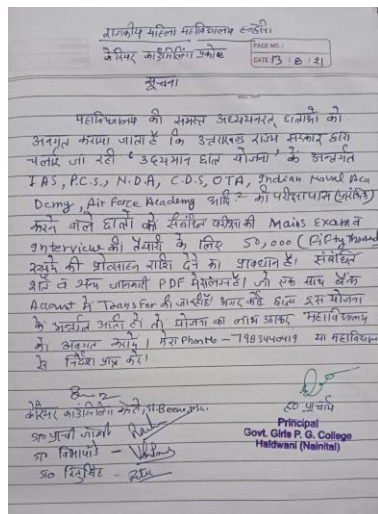 राजकीय महिला महाविद्यालय हल्द्वानी
कैरियर काउंसिलिंग प्रकोष्ठ
PAGE NO. :
DATE : 13/8/21
सूचना
महाविद्यालय की समस्त अध्ययनरत् छात्राओं को
अवगत कराया जाता है कि उत्तराखण्ड राज्य सरकार द्वारा
चलाई जा रही "उदयमान छात्र योजना" के अन्तर्गत
IAS, P.C.S., N.D.A, C.D.S, OTA, Indian Naval Aca
Demy, Air Force Academy आदि की परीक्षा पास (प्रारंभिक)
करने वाले छात्रों को संबंधित परीक्षा की Mains Exam व
Interview की तैयारी के लिए 50,000 (Fifty thousand
रुपये की प्रोत्साहन राशि देने का प्रावधान है। संबंधित
शर्तें व अन्य जानकारी PDF में संलग्न है। जो एक साथ बैंक
Account में Transfer की जायेगी। अगर कोई छात्रा इस योजना
के अन्तर्गत आती है तो योजना का लाभ उठाकर महाविद्यालय
को अवगत करायें। मेरा Phone No - या महाविद्यालय
से निर्देश प्राप्त करें।
कैरियर काउंसिलिंग कमेटी,
डा० प्राची जोशी
डा० विभा पांडे -
डा० रितु सिंह -
ह० प्राचार्य
Principal
Govt. Girls P. G. College
Haldwani (Nainital)